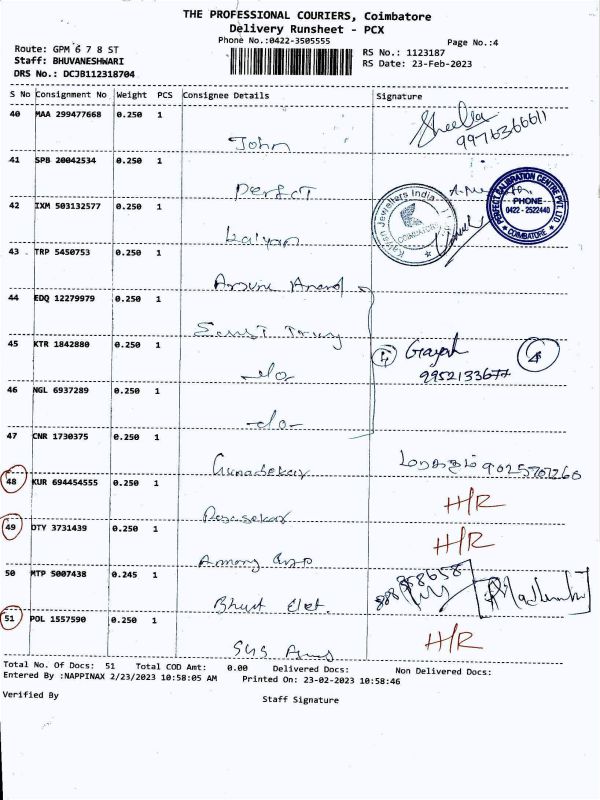 THE PROFESSIONAL COURIERS, Coimbatore
Delivery Runsheet - PCX
Phone No.:0422-3505555
Page No.:4
Route: GPM 6 7 8 ST
Staff: BHUVANESHWARI
DRS No.: DCJB112318704
RS No.: 1123187
RS Date: 23-Feb-2023
S No Consignment No Weight PCS Consignee Details Signature
40 MAA 299477668 0.250 1
John
Sheella
9976366611
41 SPB 20042534 0.250 1
Perfect
PERFECT CALIBRATION CENTRE PVT LTD
PHONE
0422 - 2522440
COIMBATORE
42 IXM 503132577 0.250 1
Kalyan
Kalyan Jewellers India
COIMBATORE
43 TRP 5450753 0.250 1
Anand
44 EDQ 12279979 0.250 1
45 KTR 1842880 0.250 1
-do-
4
9952133677
46 NGL 6937289 0.250 1
-do-
47 CNR 1730375 0.250 1
Gunasekar
மரகதம் 9025701260
48 KUR 694454555 0.250 1
Rajasekar
H/R
49 OTY 3731439 0.250 1
H/R
50 MTP 5007438 0.245 1
51 POL 1557590 0.250 1
H/R
Total No. Of Docs: 51 Total COD Amt: 0.00 Delivered Docs: Non Delivered Docs:
Entered By :NAPPINAX 2/23/2023 10:58:05 AM Printed On: 23-02-2023 10:58:46
Verified By Staff Signature